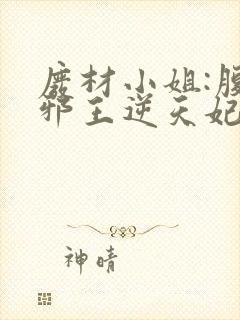 废材小姐:腹
邪王逆天妃
神晴